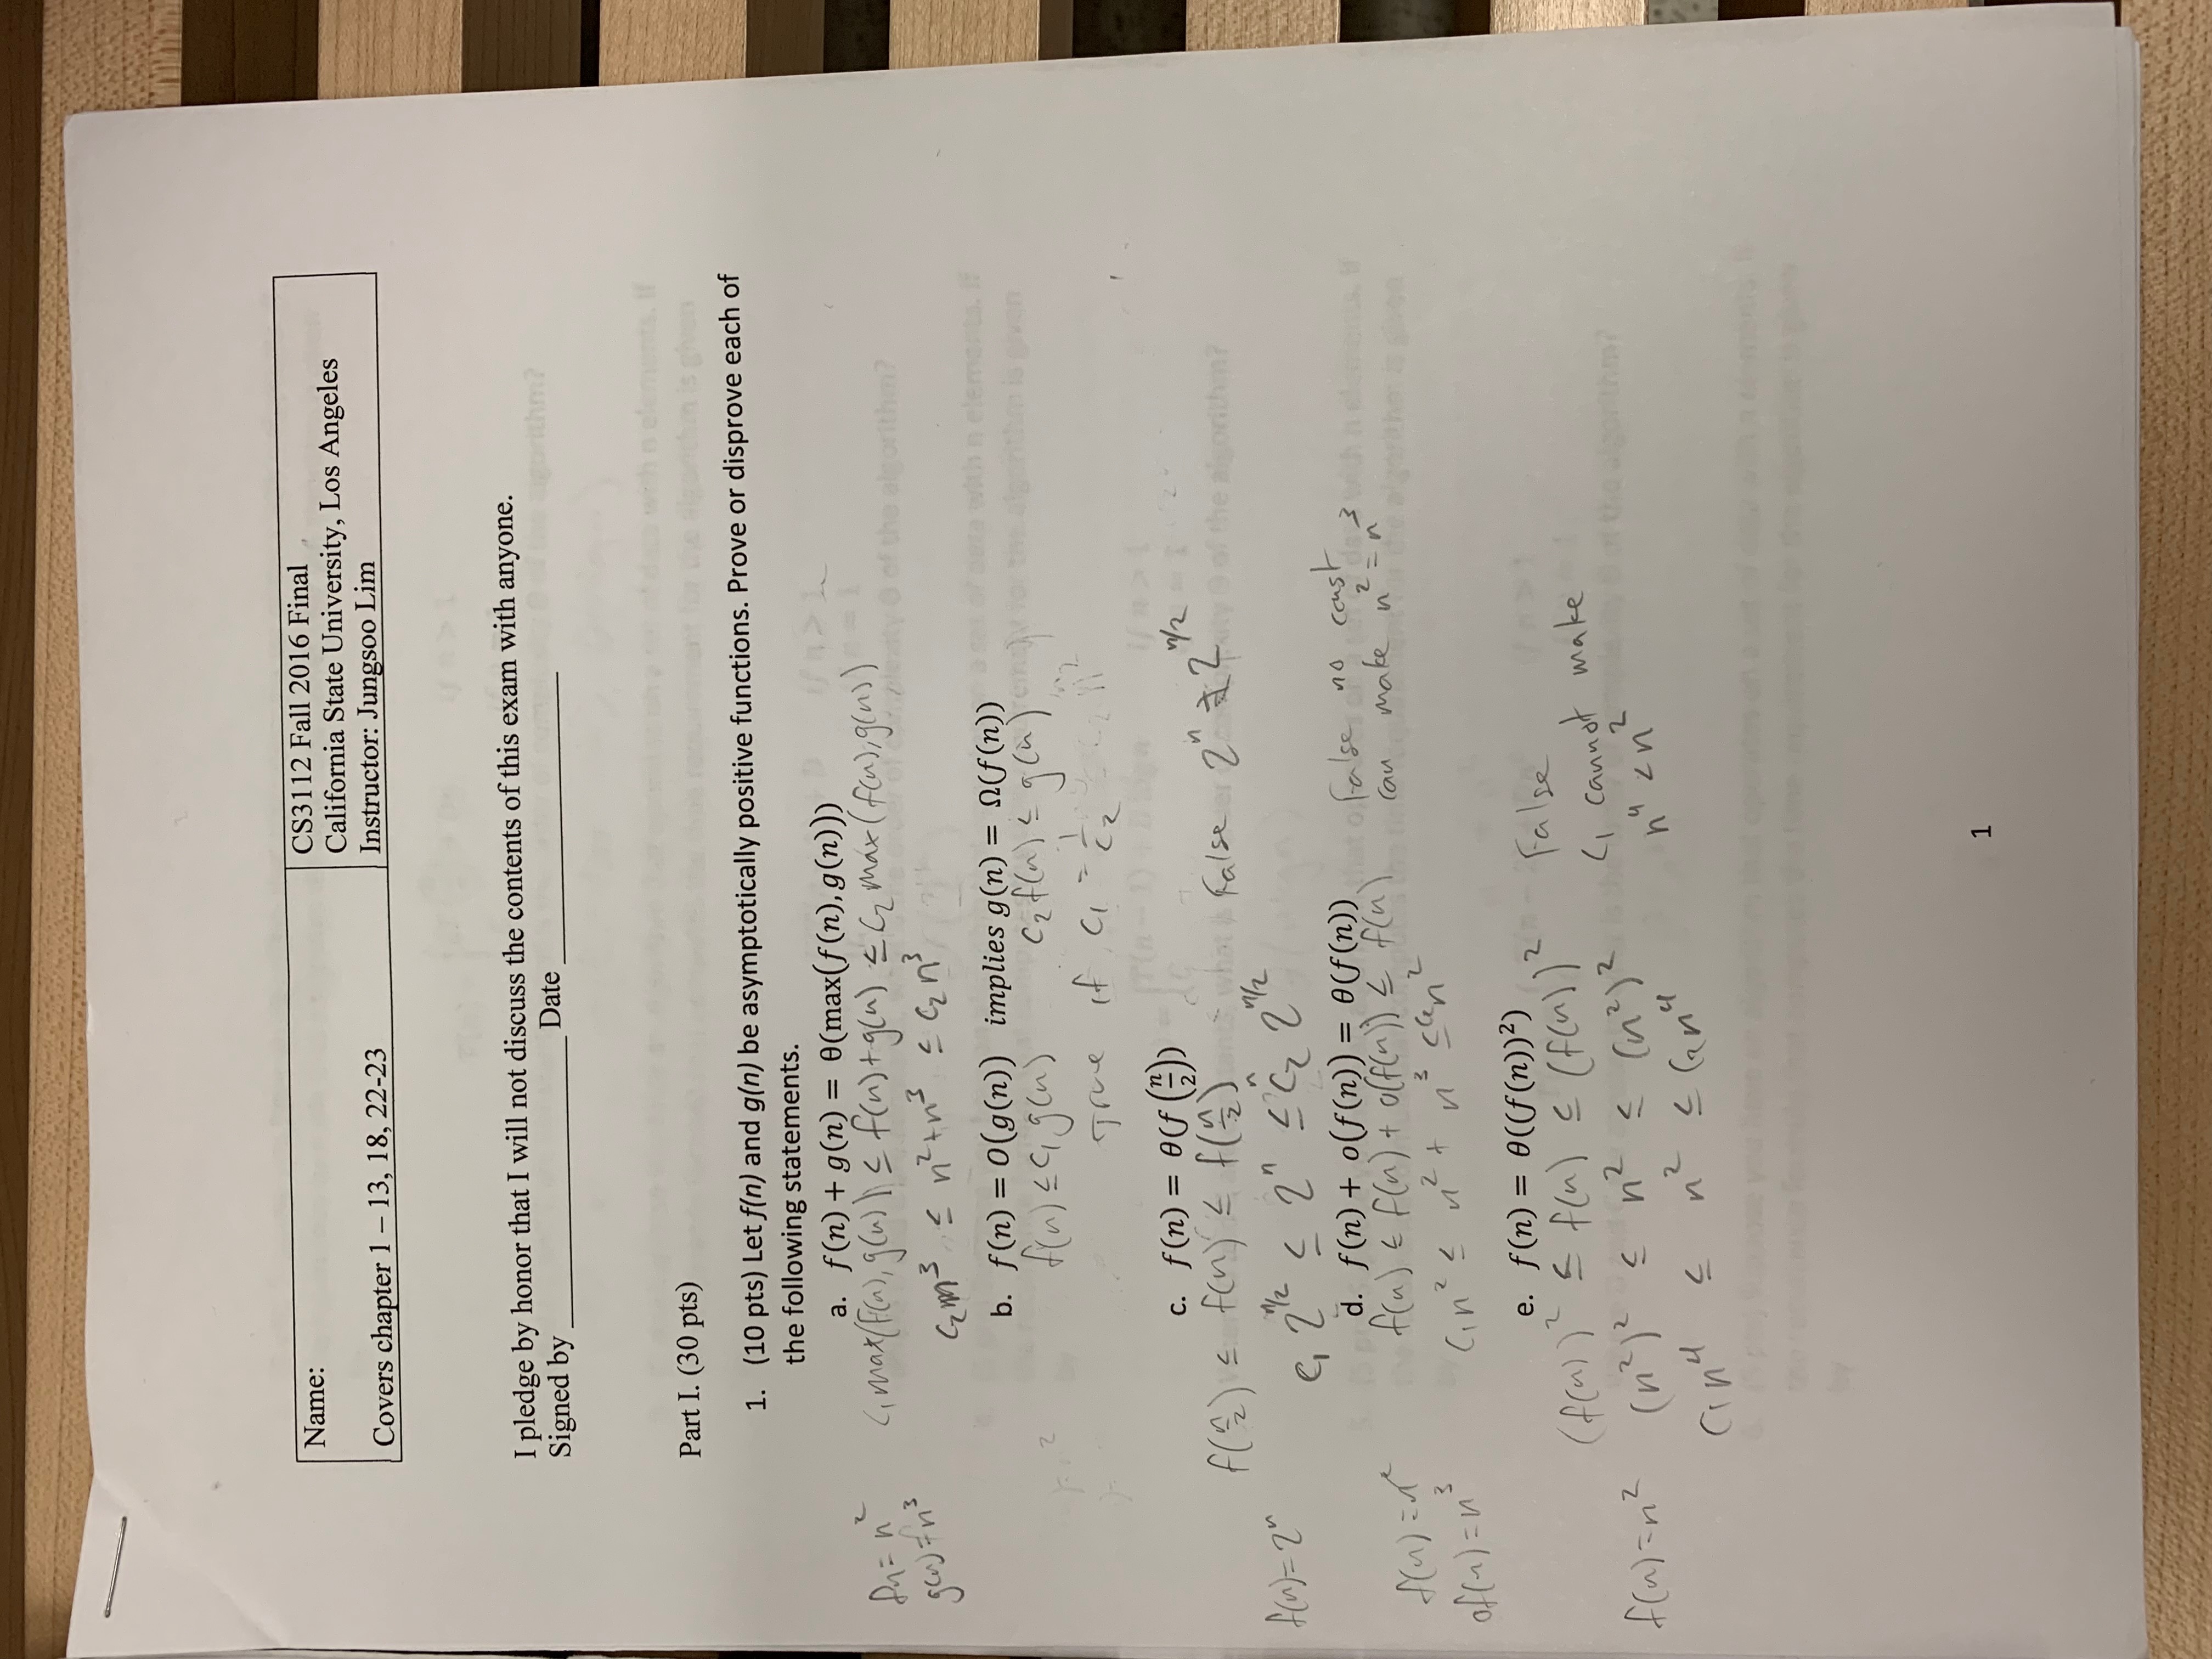 Name:
Covers chapter 1 – 13, 18, 22-23
CS3112 Fall 2016 Final
California State University, Los Angeles
Instructor: Jungsoo Lim
I pledge by honor that I will not discuss the contents of this exam with anyone.
Signed by ____________________ Date ____________________
Part I. (30 pts)
1. (10 pts) Let f(n) and g(n) be asymptotically positive functions. Prove or disprove each of
the following statements.
a. f(n) + g(n) = θ(max(f(n), g(n)))
fn = n²
g(n) = n³
C₁ max(f(n), g(n)) ≤ f(n)+g(n) ≤ C₂ max(f(n), g(n))
C₂ n³ ≤ n²+n³ ≤ C₂ n³
b. f(n) = O(g(n)) implies g(n) = Ω(f(n))
f(n) ≤ C₁ g(n) C₂ f(n) ≤ g(n)
True if C₁ = 1/C₂
c. f(n) = θ(f(n/2))
f(n/2) ≤ f(n) ≤ f(n/2) False 2ⁿ ≠ 2^(n/2)
f(n) = 2ⁿ
C₁ 2^(n/2) ≤ 2ⁿ ≤ C₂ 2^(n/2)
d. f(n) + o(f(n)) = θ(f(n)) False no const
f(n) ≤ f(n) + o(f(n)) ≤ f(n) can make n² = n³
f(n) = n²
of(n) = n³
C₁n² ≤ n² + n³ ≤ C₂n²
e. f(n) = θ((f(n))²)
(f(n))² ≤ f(n) ≤ (f(n))² False
C₁ cannot make
n⁴ < n²
f(n) = n² (n²)² ≤ n² ≤ (n²)²
C₁n⁴ ≤ n² ≤ C₂n⁴
1